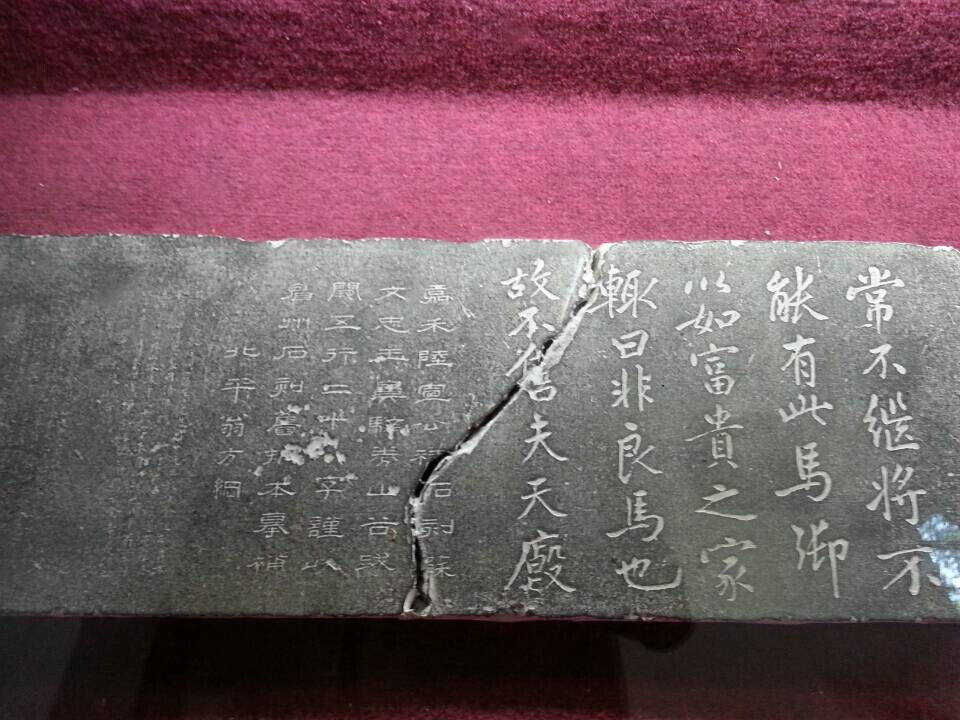 常不継将不
能有此馬御
以如富貴之家
輒曰非良馬也
故不售夫天廄
嘉禾陸宣公祠石刻蘇
文忠玉鼻騂券山谷跋
闕五行二十八字謹以
眉州石刻舊拓本摹補
北平翁方綱